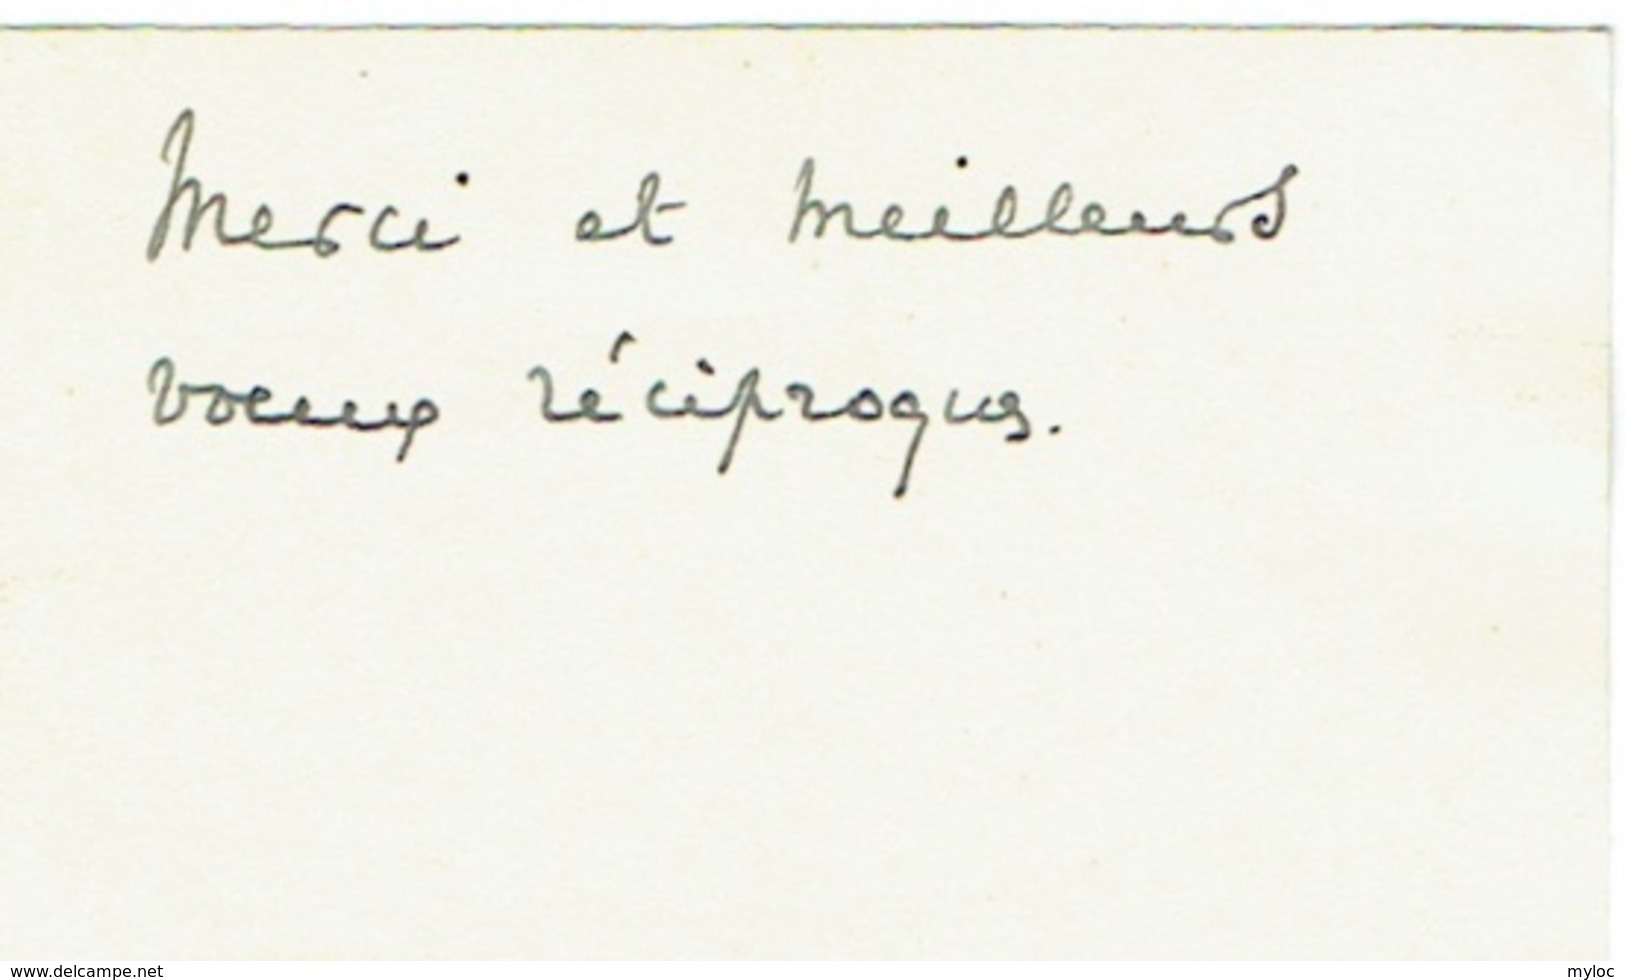 Merci et meilleurs
voeux réciproques.
www.delcampe.net
myloc